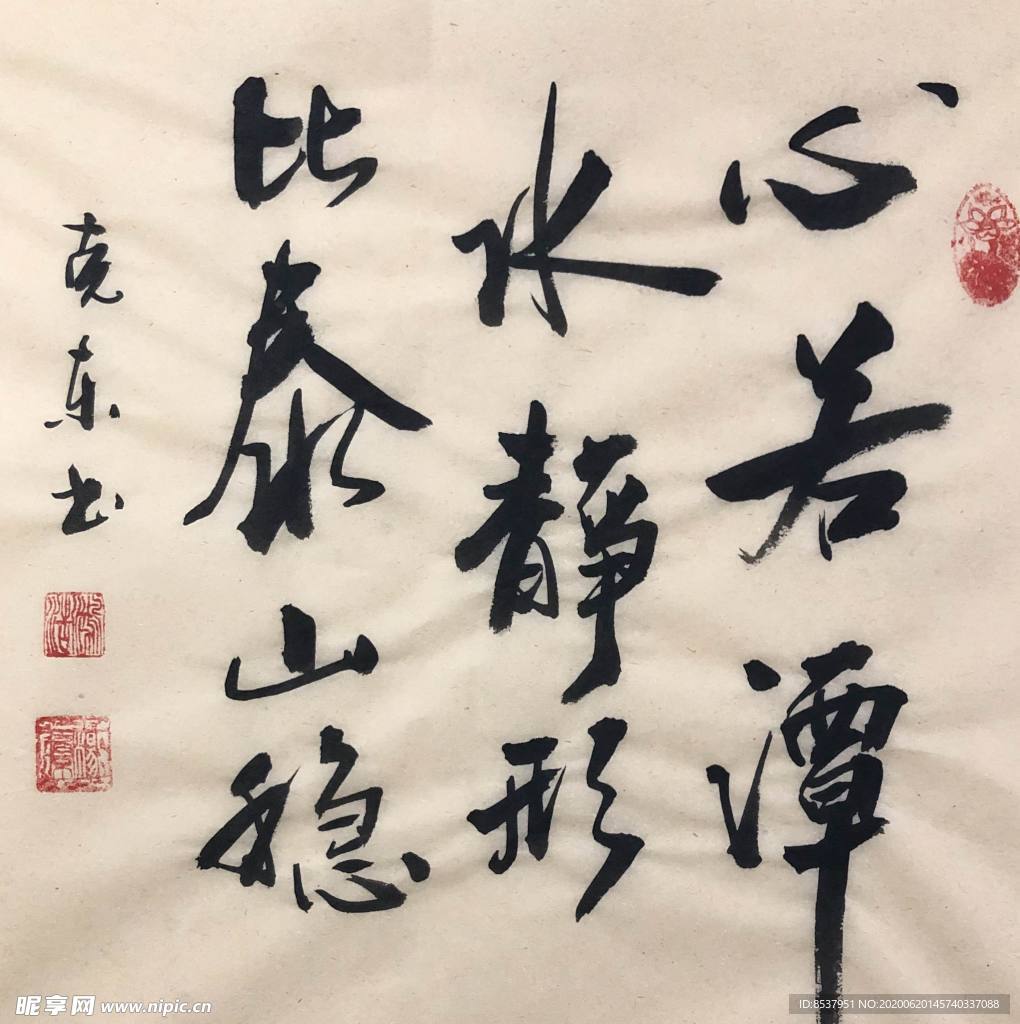 心若潭
水静形
比泰山稳
克东书
昵享网 www.nipic.cn
ID:8537951 NO:20200620145740337088